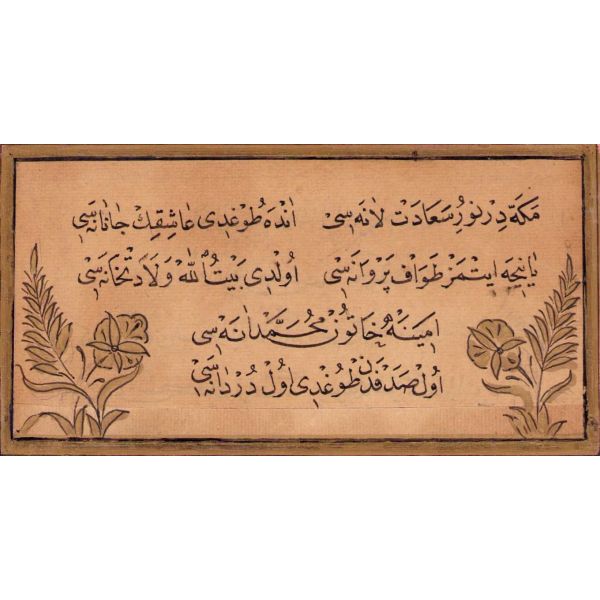 مكه در نور سعادت لانه سی  انده طوغدی عاشقك جانانه سی
یا نیجه ایتمز طواف پروانه سی  اولدی بیت الله ولادتخانه سی
امینه خاتون محمد انه سی
اول صدفدن طوغدی اول دردانه سی